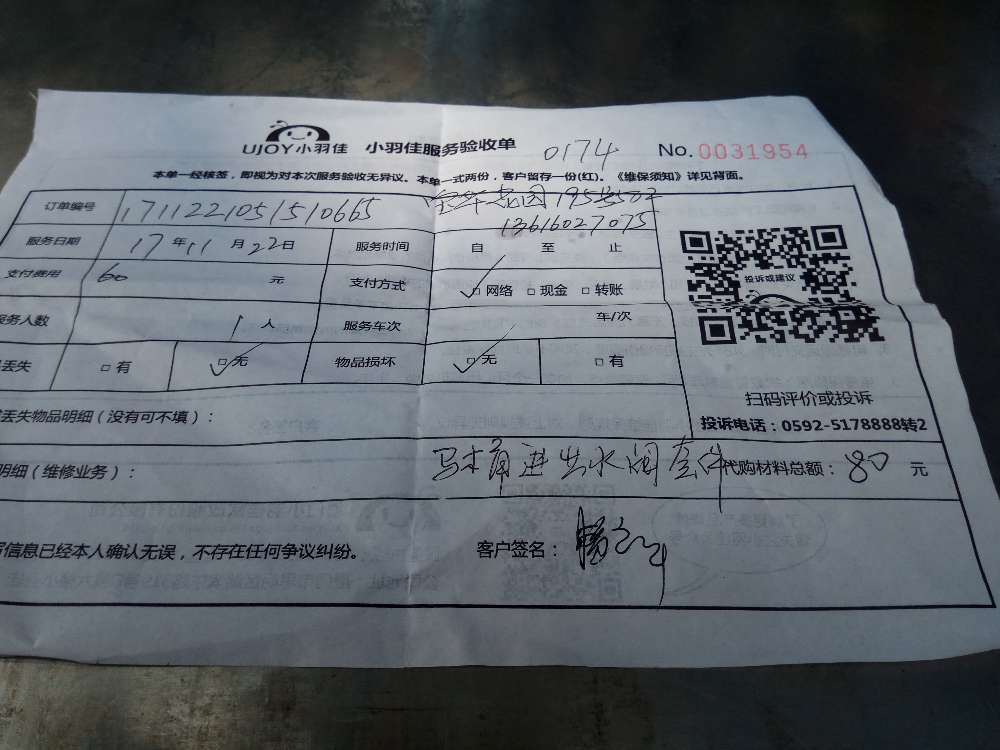 UJOY小羽佳 小羽佳服务验收单 0174 No.0031954
本单一经核签，即视为对本次服务验收无异议。本单一式两份，客户留存一份(红)。《维保须知》详见背面。
订单编号 1711221051510665 花园195号502
13616027075
服务日期 17年11月22日 服务时间 自 至 止
支付费用 60 元 支付方式 ✓□网络 □现金 □转账
服务人数 1人 服务车次 / 车/次
丢失 □有 ✓□无 物品损坏 ✓□无 □有
丢失物品明细（没有可不填）：
明细（维修业务）： 马木角进出水阀套件 代购材料总额：80 元
信息已经本人确认无误，不存在任何争议纠纷。 客户签名：
投诉或建议
扫码评价或投诉
投诉电话：0592-5178888转2